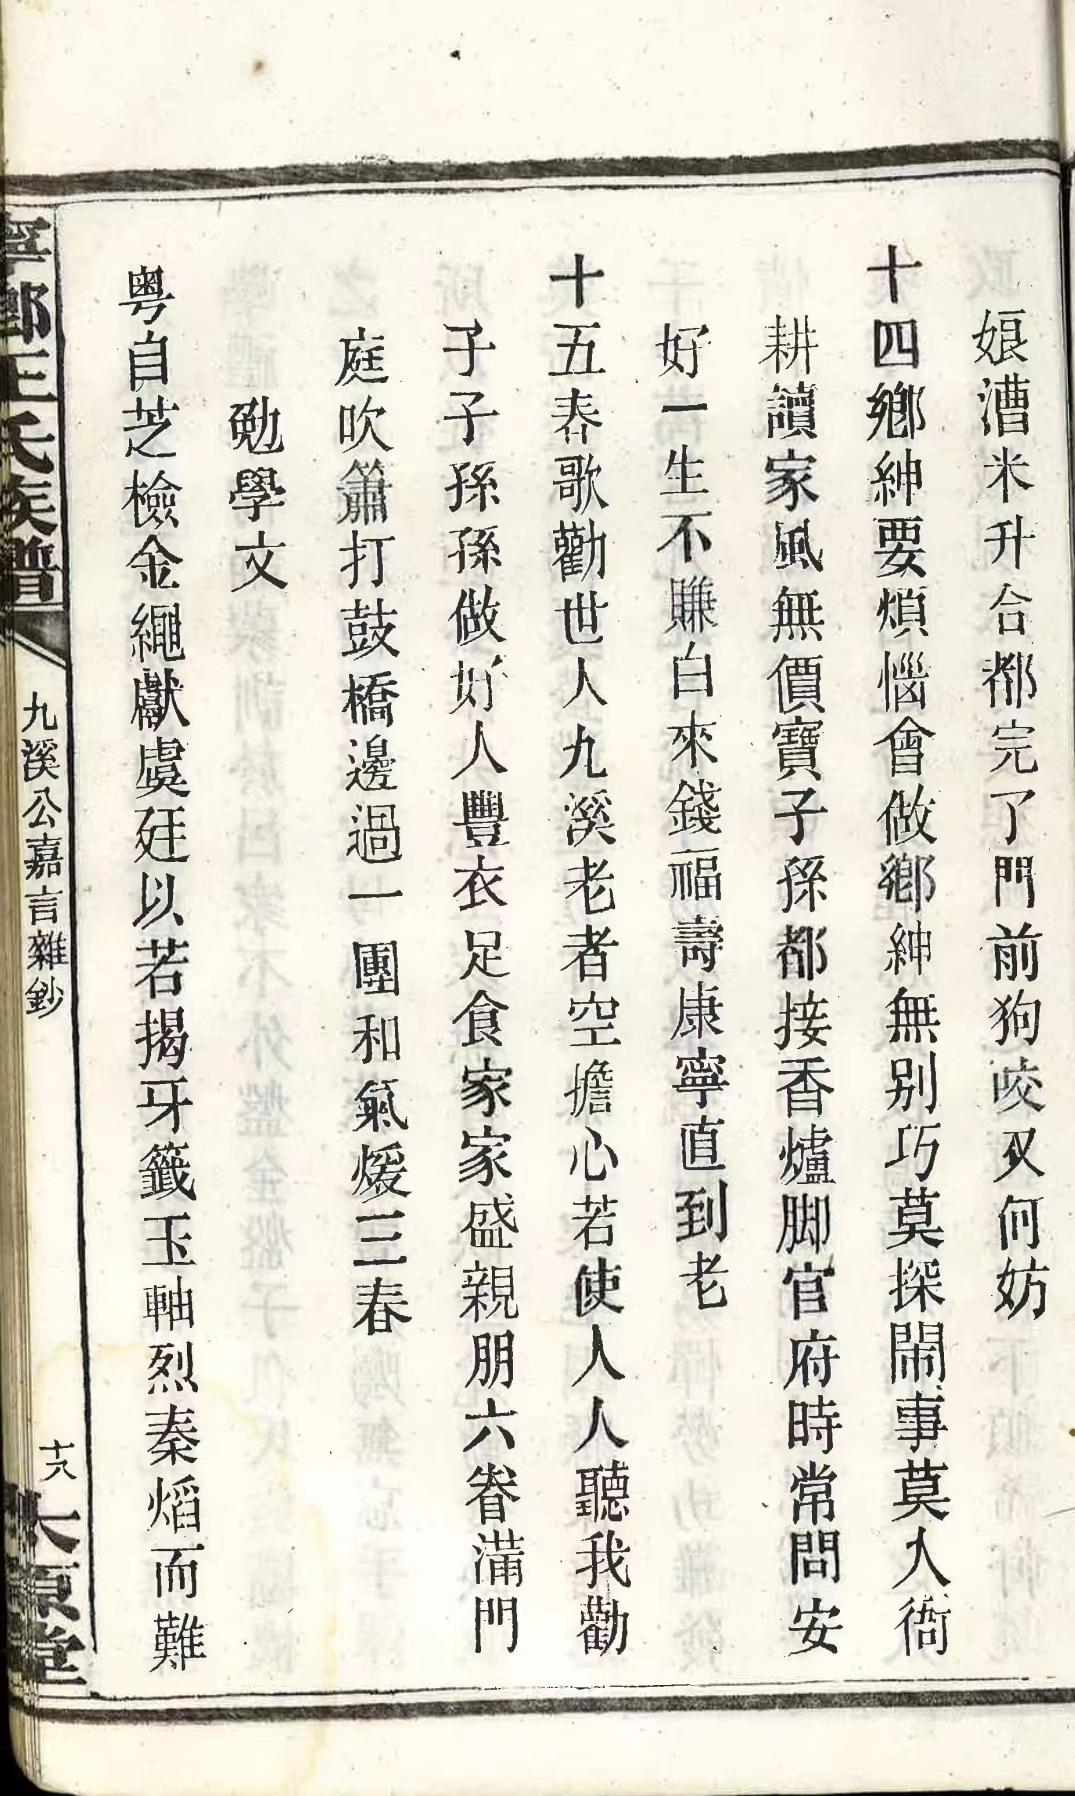 娘漕米升合都完了門前狗咬又何妨
十四鄉紳要煩惱會做鄉紳無别巧莫探閙事莫入衙
耕讀家風無價寶子孫都接香爐脚官府時常問安
好一生不賺白來錢福壽康寧直到老
十五春歌勸世人九溪老者空擔心若使人人聽我勸
子子孫孫做好人豐衣足食家家盛親朋六眷滿門
庭吹簫打鼓橋邊過一團和氣煖三春
勉學文
粤自芝檢金繩獻虞廷以若揭牙籤玉軸烈秦焰而難
寧鄉王氏族譜
九溪公嘉言雜鈔
十八
太原堂